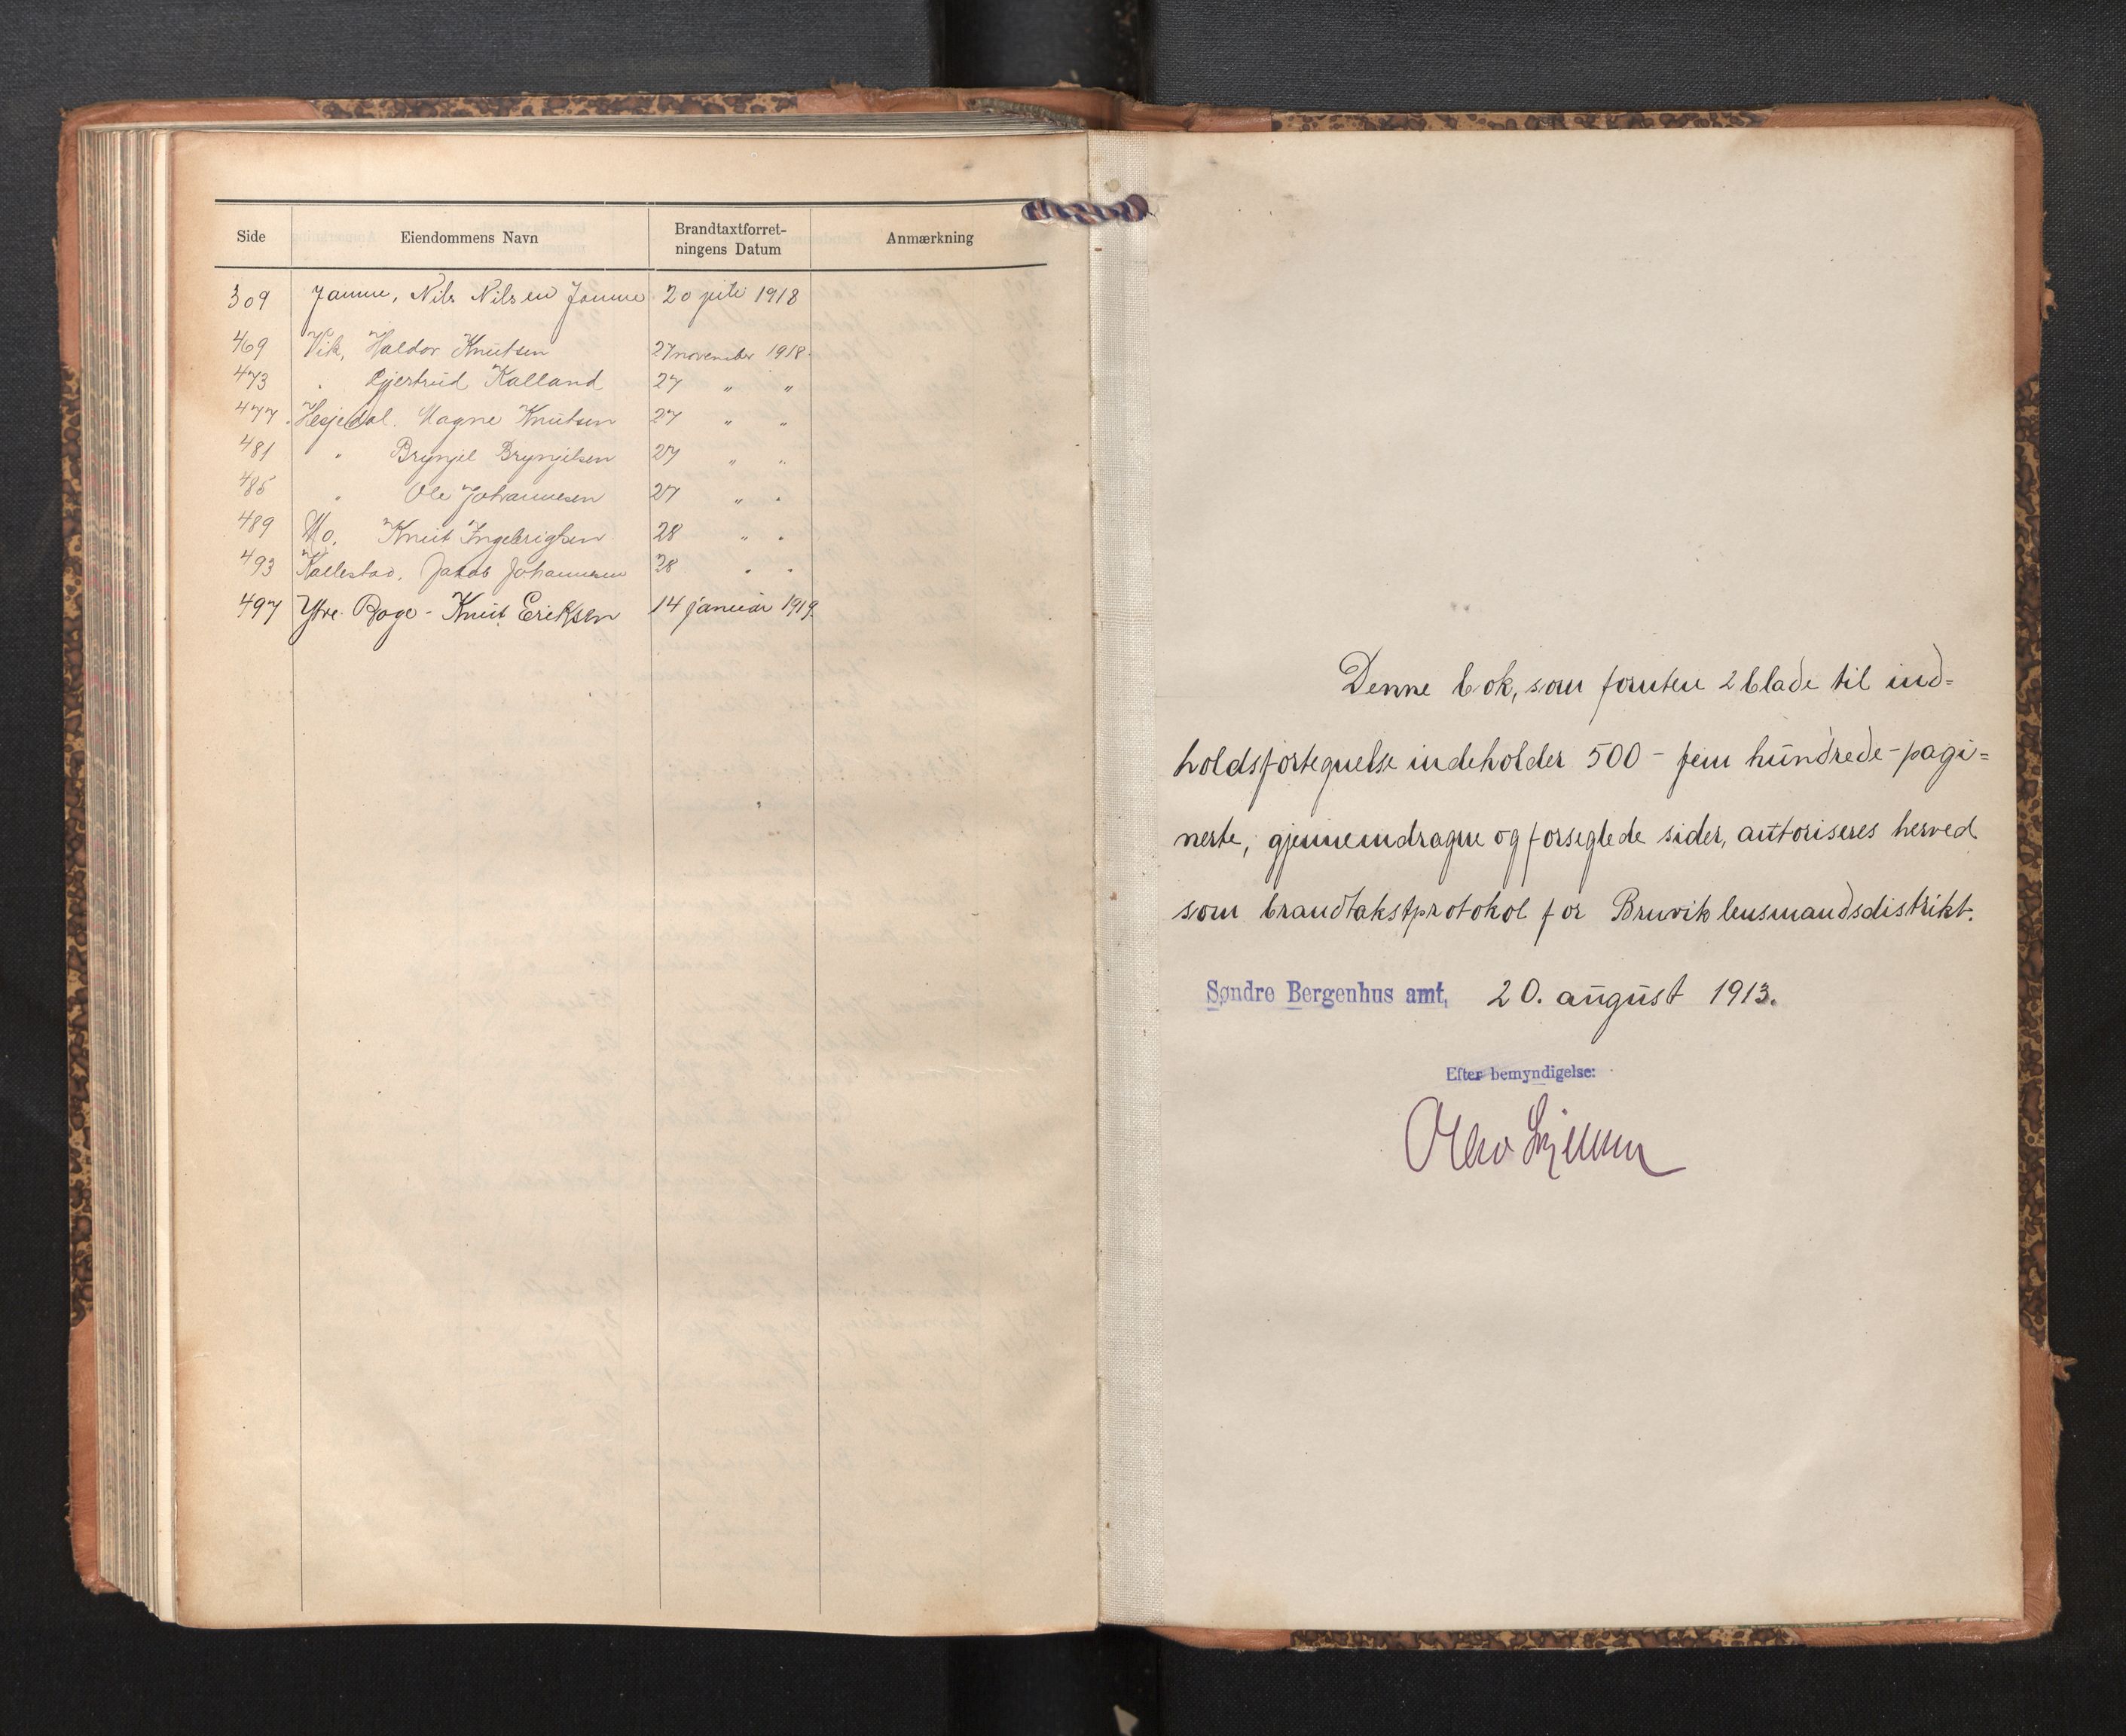 Side Eiendommens Navn Brandtaxtforret-
ningens Datum Anmærkning
309 Jamne, Nils Nilsen Jamne 20 juli 1918
469 Vik, Haldor Knutsen 27 november 1918
473 " Gjertrud Kalland 27 " "
477 Hesjedal. Magne Knutsen 27 " "
481 " Brynjel Brynjelsen 27 " "
485 " Ole Johannesen 27 " "
489 Mo. Knut Ingebrigtsen 28 " "
493 Kallestad, Jakob Johannesen 28 " "
497 Ytre Boge - Knut Eriksen 14 januar 1919.
Denne bok, som foruten 2 blade til ind=
holdsfortegnelse indeholder 500 - fem hundrede - pagi=
nerte, gjennemdragne og forseglede sider, autoriseres herved
som brandtakstprotokol for Bruvik lensmandsdistrikt.
Søndre Bergenhus amt, 20. august 1913.
Efter bemyndigelse: